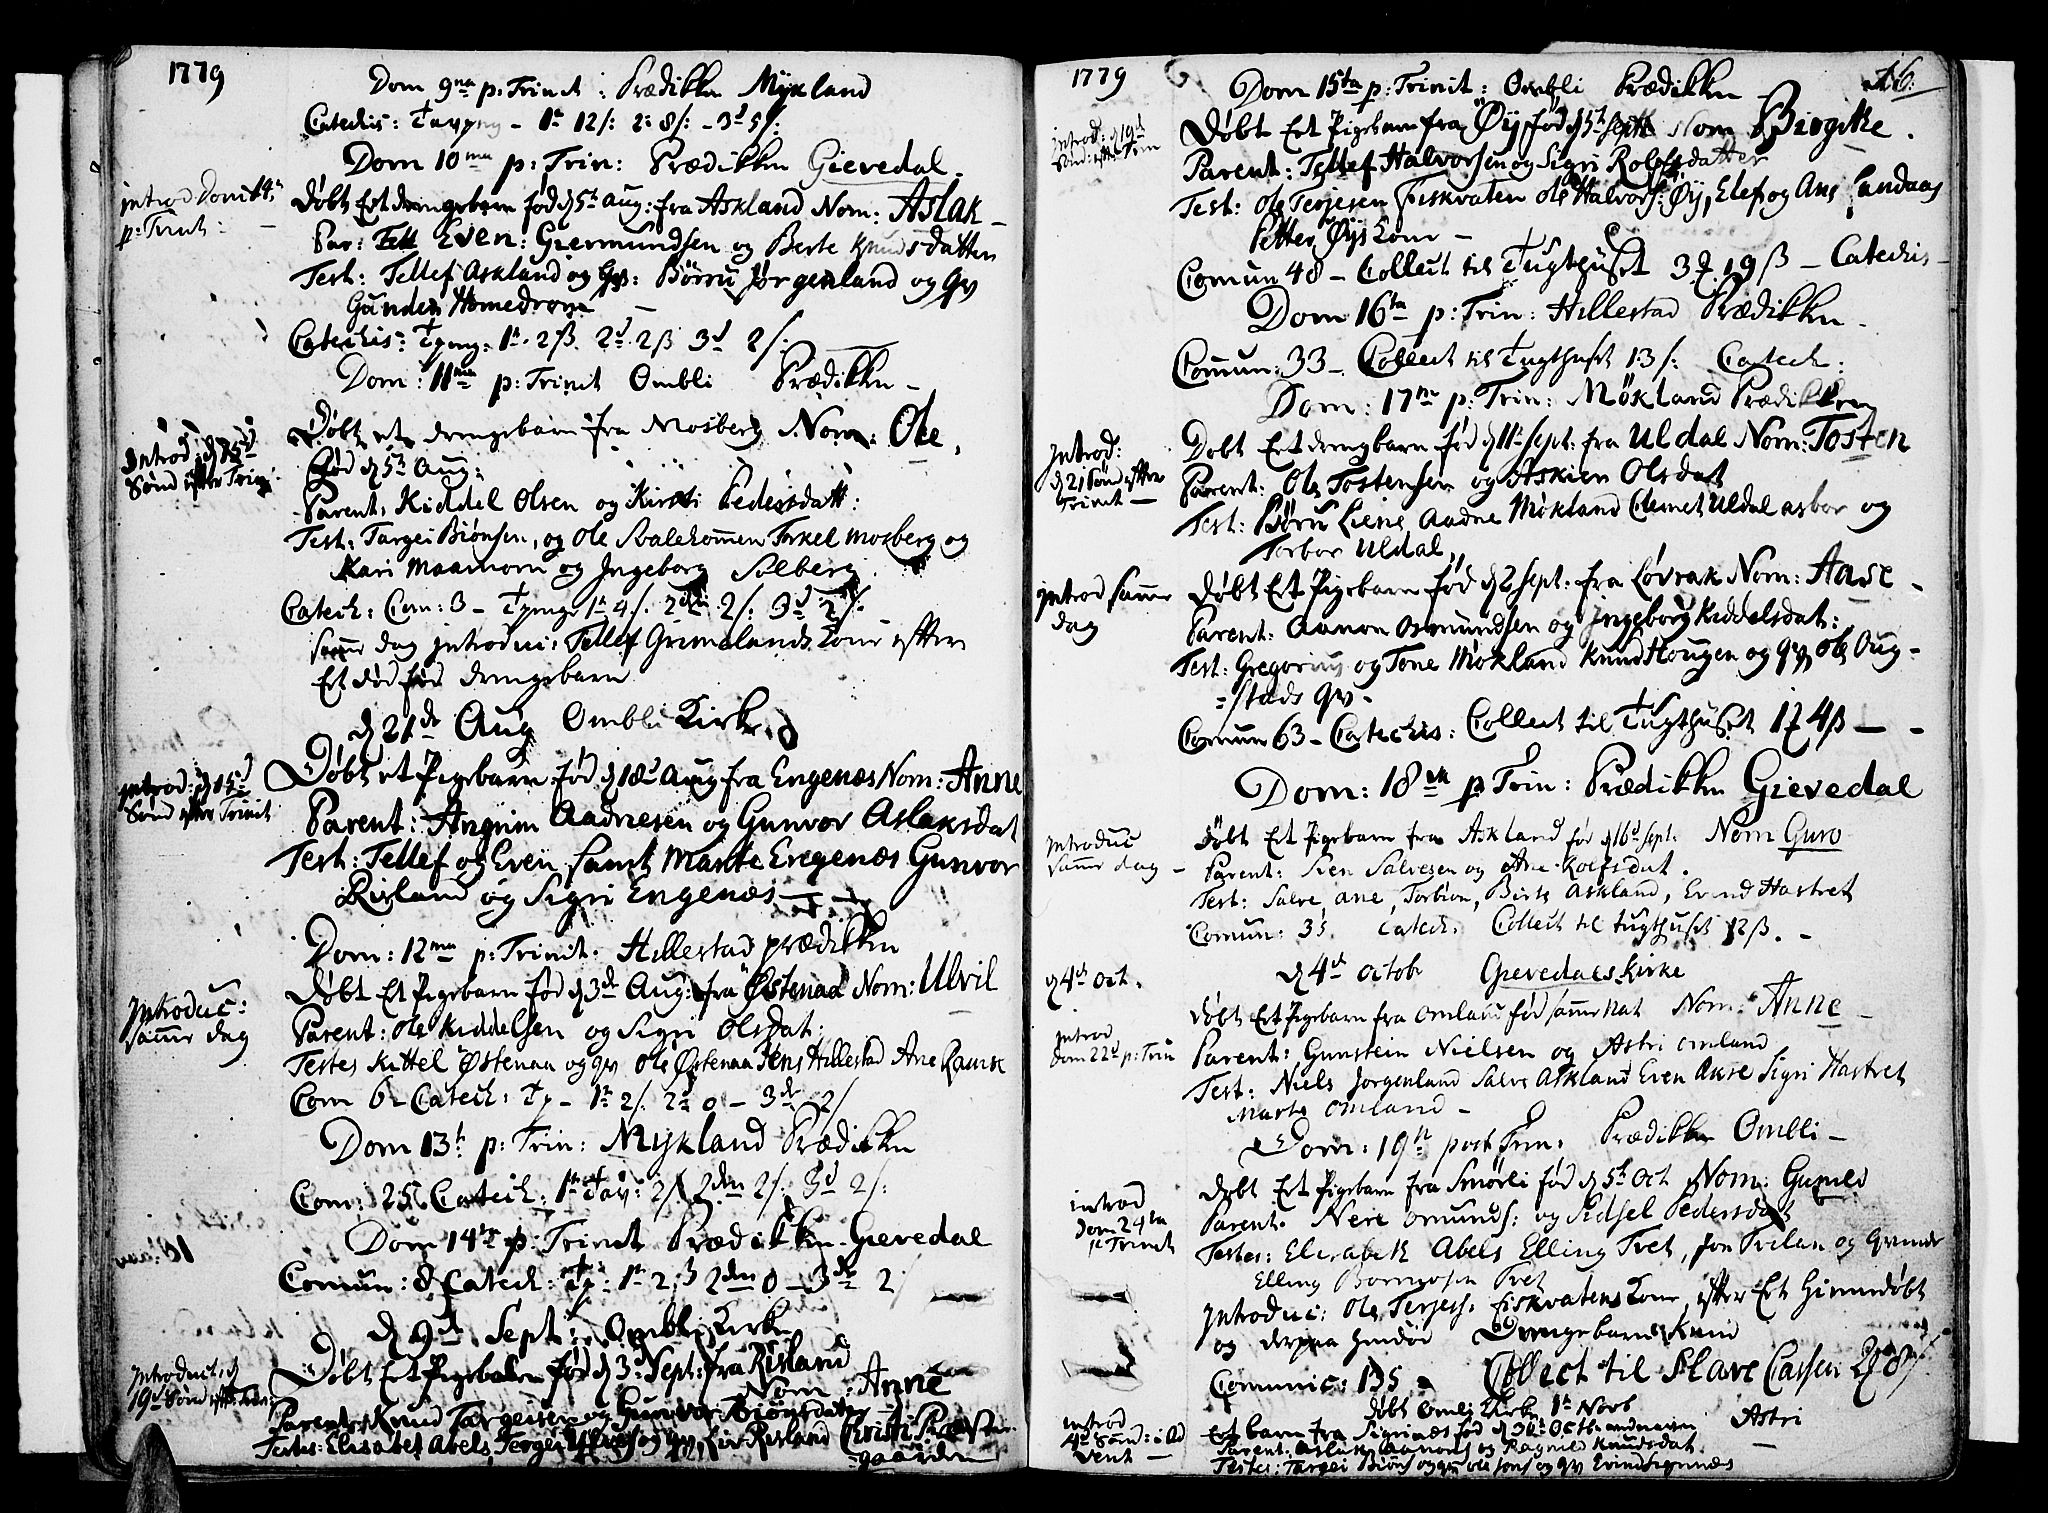 1779
Dom 9na p: Trinit: Prædikken Mykland
Catechis: Tavpeng - 1te 12/: 2: 8/: - 3d 5/:
Dom 10ma p: Trin: Prædikken Gievedal.
introd Dom 14de
p: Trinit:
Døbt Ert drengebarn fød d 5te Aug: fra Askland Nom: Aslak -
Par: Even: Giermundsen og Berte Knudsdatter
Test: Tellef Askland og Børru Jørgenland og qv
Gunder Homedrom
Catechis: Tpeng: 1te 2ß 2d 2ß 3d 2/:
Dom: 11ma p: Trinit Ombli Prædikken -
Introd: d 15d
Sønd efter Trin:
Døbt et drengebarn fra Mosberg Nom: Ole,
fød d 5te Aug:
Parent: Kiddel Olsen og Kirsti Pedersdatt:
Test: Targei Biønsen, og Ole Svalehommen Torkel Mosberg og
Kari Maamoen og Ingeborg Solberg
Catech: Com: 3 - Tpenge 1te 4/: 2den 2/: 3d 2/:
samme dag introduc: Tellef Grimelands Kone efter
Et død fød drengebarn
d 21de Aug Ombli Kirke
introd: d 15d
Sønd efter Trinit
Døbt et Pigebarn fød d 18d Aug fra Engenæs Nom: Anne
Parent: Angrim Aadnesen og Gunvor Aslaksdat
Test: Tellef og Even samt Marte Engenæs Gunvor
Risland og Sigri Engenæs
Dom: 12ma p: Trinit: Hillestad prædikken
Introduc:
samme dag
Døbt Et Pigebarn fød d 3de Aug: fra Østenaa Nom: Ulvil
Parent: Ole Kiddelsen og Sigri Olsdat:
Testes Kittel Østenaa og qv Ole Østenaa Jens Hillestad Ane Ramse
Com 6 - Catech: Tp - 1te 2/: 2d 0 - 3de 2/
Dom 13te p: Trin: Mykland Prædikken
Com: 25 Catech: 1te Tav: 2/ 2den 2/: 3d 2/:
Dom 14de p: Trinit Prædikken Gievedal
Comun: 8 Catech: Tp: 1te 2:ß 2den 0 - 3de 2
d 9de Sept: Ombli Kirke
Introduct: d
19d Sønd efter Trin:
Døbt Ert Pigebarn fød d 3: Sept: fra Risland
Nom: Anne
Parent: Knud Targeisen og Gunvor Biønsdatter
Testes: Elisabet Abels, Risland Christi Præste-
gaarden
1779
16:
Dom 15ta p: Trinit: Ombli Prædikken
introd: d 19d
Sønd: efter Trin
Døbt Ert Pigebarn fra Øy fød d 5te Septb Nom Birgitte.
Parent: Tellef Halvorsen og Sigri Rolfsdatter
Test: Ole Terjesen Fiskvaten Ole Halvors: Øy, Elef og Ane Landaas
Petter Øys Kone -
Comun 48 - Collect til Tugthuset 3 19 ß - Catechis -
Dom 16ta p: Trin: Hillestad Prædikken -
Comun: 33 - Collect til Tugthuset 13/: Catech:
Dom: 17ma p: Trin: Mökland Prædikken
Introd:
d 21 Sønd efter
Trinit -
Døbt Ert drengbarn fød d 11te Sept: fra Uldal Nom: Tosten
Parent: Ole Tostensen og Askien Olsdat
Test: Børu Liene Aadne Mökland Clemet Uldal Asbor og
Torbor Uldal,
introd samme
dag
Døbt Et Pigebarn fød d 2 Sept: fra Løvrak Nom: Aase -
Parent: Aanon Osmundsen og Ingeborg Kiddelsdat:
Test: Gregorius og Tone Mökland Knud Hougen og qv, Ole Aug-
=stads qv -
Comun 63 - Catechis: Collect til Tugthuset 1 4ß - -
Dom: 18de p Trin: Prædikken Gievedal
Introduc
samme dag -
Døbt Et Pigebarn fra Askland fød d 16d Sept: Nom Guro
Parent: Sven Salvesen og Ane Rolfsdat.
Test: Salve, Ane, Torbion, Birte Askland, Evind Hastvet
Comun: 35. Catech. Collect til Tugthuset 12ß. -
d 4de Oct.
d 4de Octob Gievedals Kirke
introd
Dom 22d p: Trin
Døbt Et Pigebarn fra Omland fød samme Nat Nom: Anne -
Parent: Gunstein Nielsen og Astri Omland
Test: Niels Jorgenland Salve Askland Even Akse Sigri Hastvet
Marte Omland -
Dom: 19de post Trin: Prædikken Ombli -
introd
Dom 24ta
p Trinit
Døbt Ert Pigebarn fra Smörli fød d 5te Oct Nom: Guneld
Parent. Nere Omunds: og Sidsel Pedersdat
Testes: Elisabeth Abels Elling Tvet, Jon Trilan og
Elling Tvet
Introduc: Ole Terjess: Fiskvatens Kone efter Et Hiemedøbt
og derpaa Drengebarn Knud
Comunic: 135 - Collect til Slave Cassen
Døbt Ombli Kirke 1te Novb
introd
4de Sønd: i Ad
vent -
Et barn fra Sigrinæs fød d 30te Octb Astri
Parent: Aslak Aanons og Ragnild Knudsdat.
Testes: Targei Biøns og qv Ole Jons og qv Evind Sigrinæs